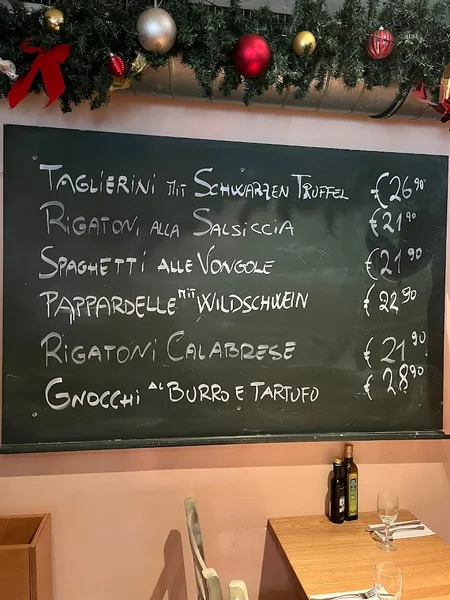 TAGLIERINI MIT SCHWARZEN TRUFFEL €26,90
RIGATONI ALLA SALSICCIA €21,90
SPAGHETTI ALLE VONGOLE €21,90
PAPPARDELLE MIT WILDSCHWEIN €22,90
RIGATONI CALABRESE €21,90
GNOCCHI AL BURRO E TARTUFO €28,90